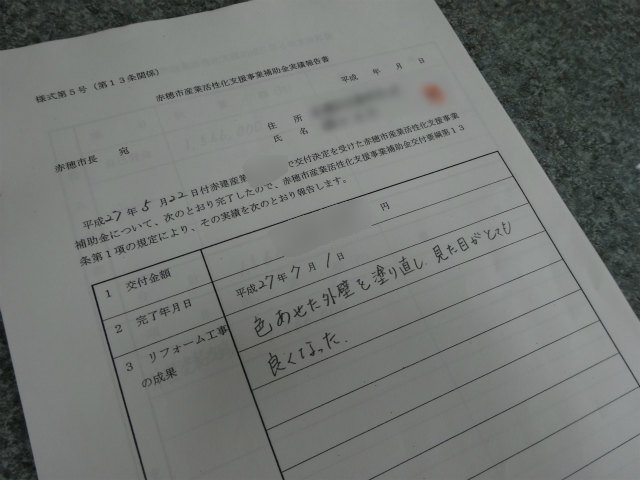 様式第5号（第13条関係）
赤穂市産業活性化支援事業補助金実績報告書
平成　年　月　日
赤穂市長　宛
住所
氏名
平成27年5月22日付赤建産第　で交付決定を受けた赤穂市産業活性化支援事業
補助金について、次のとおり完了したので、赤穂市産業活性化支援事業補助金交付要綱第13
条第1項の規定により、その実績を次のとおり報告します。
1　交付金額　円
2　完了年月日　平成27年7月1日
3　リフォーム工事の成果
色あせた外壁を塗り直し、見た目がとても
良くなった。